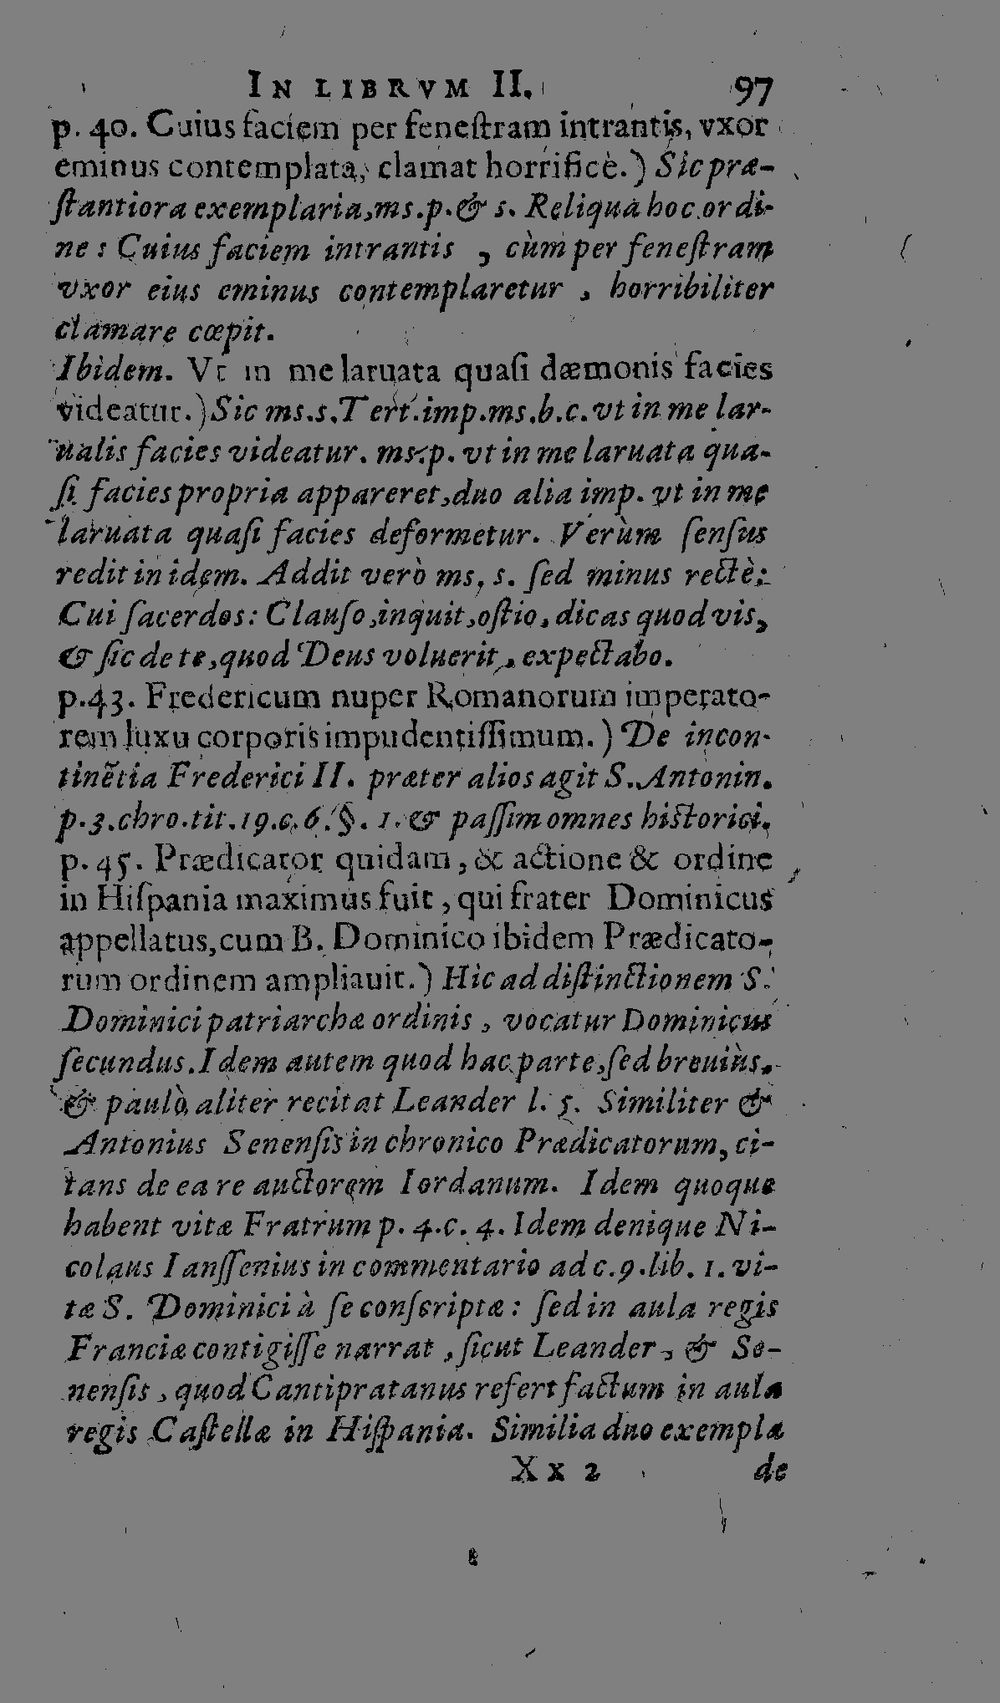 IN LIBRVM II. 97
p. 40. Cuius faciem per feneſtram intrantis, vxor
eminus contemplata, clamat horrificè.) Sic præ-
ſtantiora exemplaria, ms. p. & s. Reliqua hoc ordi-
ne : Cuius faciem intrantis , cùm per feneſtram
vxor eius eminus contemplaretur , horribiliter
clamare cœpit.
Ibidem. Vt in me laruata quaſi dæmonis facies
videatur.) Sic ms. s. Tert. imp. ms. b. c. vt in me lar-
ualis facies videatur. ms. p. vt in me laruata qua-
ſi facies propria appareret, duo alia imp. vt in me
laruata quaſi facies deformetur. Verùm ſenſus
redit in idem. Addit verò ms, s. ſed minus rectè:
Cui ſacerdos: Clauſo, inquit, oſtio, dicas quod vis,
& ſic de te, quod Deus voluerit, expectabo.
p. 43. Fredericum nuper Romanorum imperato-
rem luxu corporis impudentiſſimum.) De incon-
tinẽtia Frederici II. præter alios agit S. Antonin.
p. 3. chro. tit. 19. c. 6. §. 1. & paſſim omnes historici.
p. 45. Prædicator quidam, & actione & ordine
in Hiſpania maximus fuit, qui frater Dominicus
appellatus, cum B. Dominico ibidem Prædicato-
rum ordinem ampliauit.) Hic ad diſtinctionem S.
Dominici patriarchæ ordinis , vocatur Dominicus
ſecundus. Idem autem quod hac parte, ſed breuiùs.
& paulò aliter recitat Leander l. 5. Similiter &
Antonius Senenſis in chronico Prædicatorum, ci-
tans de ea re auctorem Iordanum. Idem quoque
habent vitæ Fratrum p. 4. c. 4. Idem denique Ni-
colaus Ianſſenius in commentario ad c. 9. lib. 1. vi-
tæ S. Dominici à ſe conſcriptæ: ſed in aula regis
Franciæ contigiſſe narrat , ſicut Leander, & Se-
nenſis , quod Cantipratanus refert factum in aula
regis Caſtellæ in Hiſpania. Similia duo exempla
Xx 2 de